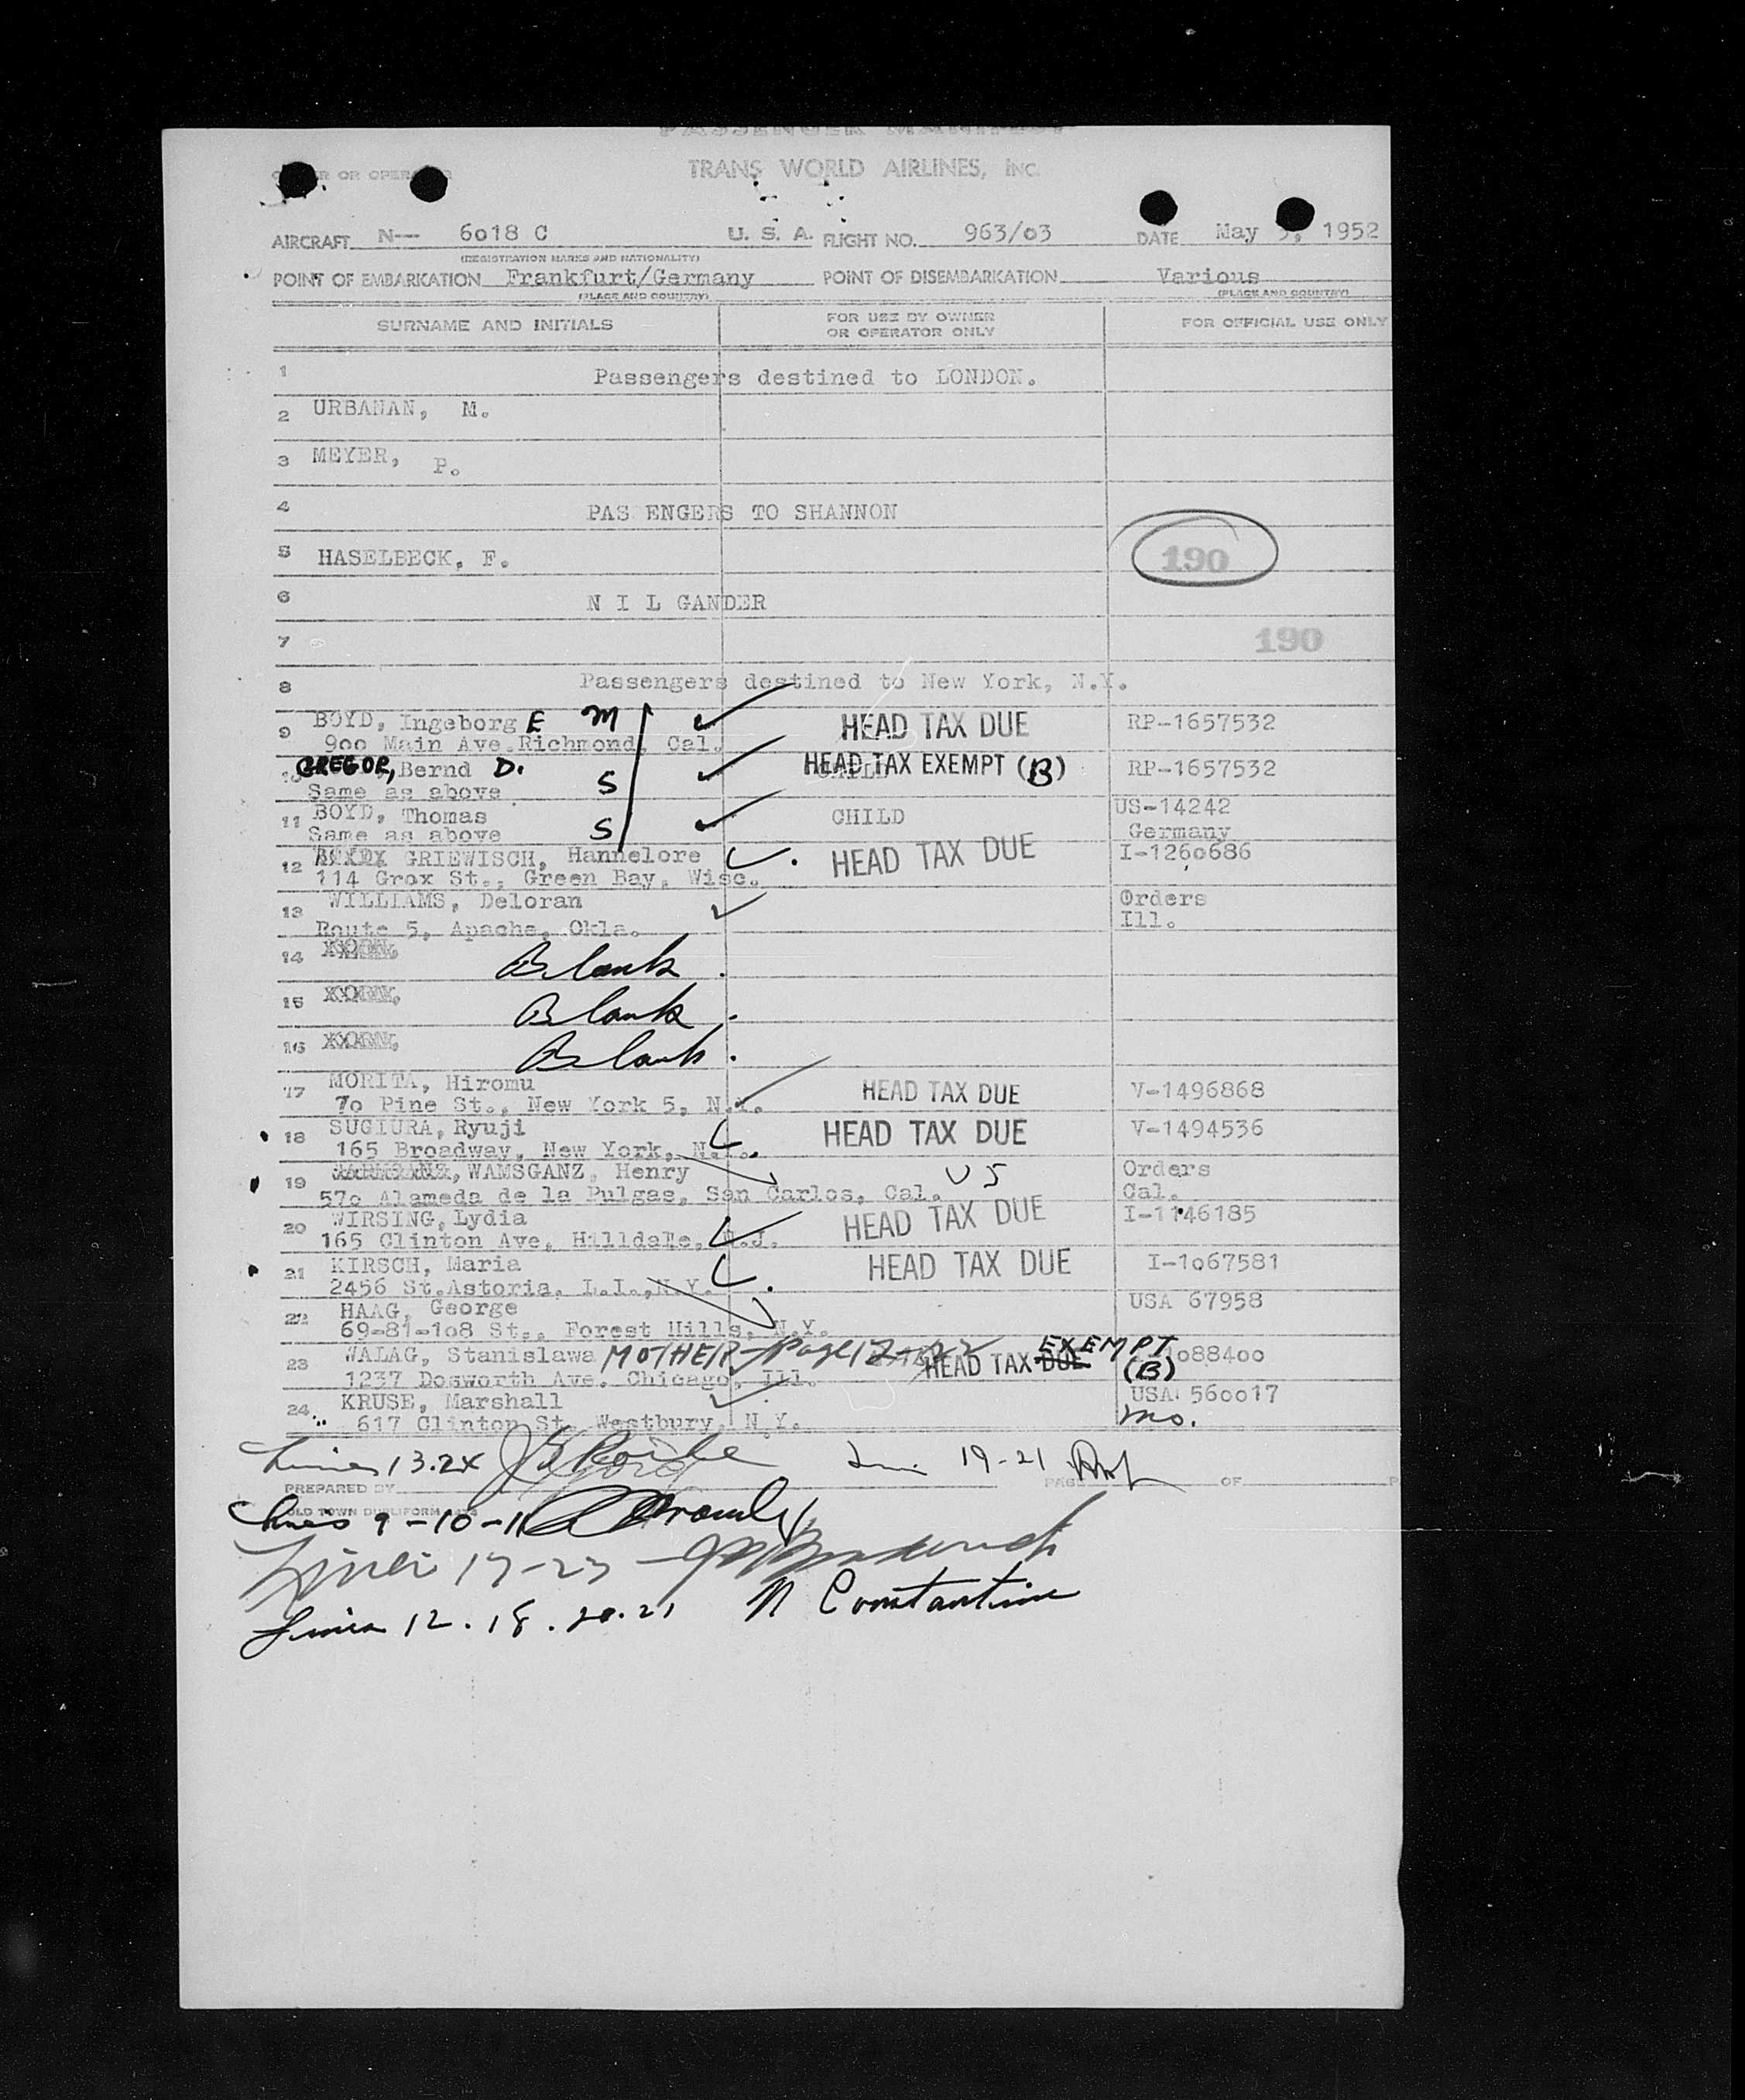 PASSENGER MANIFEST
OR OPER
TRANS WORLD AIRLINES, INC.
AIRCRAFT N-- 6018 C U. S. A. FLIGHT NO. 963/03 DATE May , 1952
(REGISTRATION MARKS AND NATIONALITY)
POINT OF EMBARKATION Frankfurt/Germany POINT OF DISEMBARKATION Various
(PLACE AND COUNTRY) (PLACE AND COUNTRY)
SURNAME AND INITIALS FOR USE BY OWNER OR OPERATOR ONLY FOR OFFICIAL USE ONLY
1 Passengers destined to LONDON.
2 URBANAN, M.
3 MEYER, P.
4 PAS ENGERS TO SHANNON
5 HASELBECK, F. 190
6 N I L GANDER
7 190
8 Passengers destined to New York, N.Y.
9 BOYD, Ingeborg E M HEAD TAX DUE RP-1657532
900 Main Ave.Richmond, Cal.
10 GREGOR, Bernd D. S HEAD TAX EXEMPT (B) RP-1657532
Same as above
11 BOYD, Thomas S CHILD US-14242
Same as above Germany
12 GRIEWISCH, Hannelore HEAD TAX DUE I-1260686
114 Grox St., Green Bay, Wisc.
13 WILLIAMS, Deloran Orders
Route 5, Apache, Okla. Ill.
14 Blank.
15 Blank.
16 Blank.
17 MORITA, Hiromu HEAD TAX DUE V-1496868
70 Pine St., New York 5, N.Y.
18 SUGIURA, Ryuji HEAD TAX DUE V-1494536
165 Broadway, New York, N.Y.
19 WAMSGANZ, Henry US Orders
570 Alameda de la Pulgas, San Carlos, Cal. Cal.
20 WIRSING, Lydia HEAD TAX DUE I-1146185
165 Clinton Ave, Hilldale, N.J.
21 KIRSCH, Maria HEAD TAX DUE I-1067581
2456 St.Astoria, L.I.,N.Y.
22 HAAG, George USA 67958
69-81-108 St., Forest Hills, N.Y.
23 WALAG, Stanislawa MOTHER - Page 12 HEAD TAX DUE EXEMPT (B) 1088400
1237 Dosworth Ave. Chicago, Ill.
24 KRUSE, Marshall USA 560017
617 Clinton St. Westbury, N.Y. Mo.
Lines 13.24 Lines 19-21
PREPARED BY PAGE OF
OLD TOWN DUPLIFORM
Lines 9-10-11
Lines 17-23
Lines 12.18.20.21 N Constantine